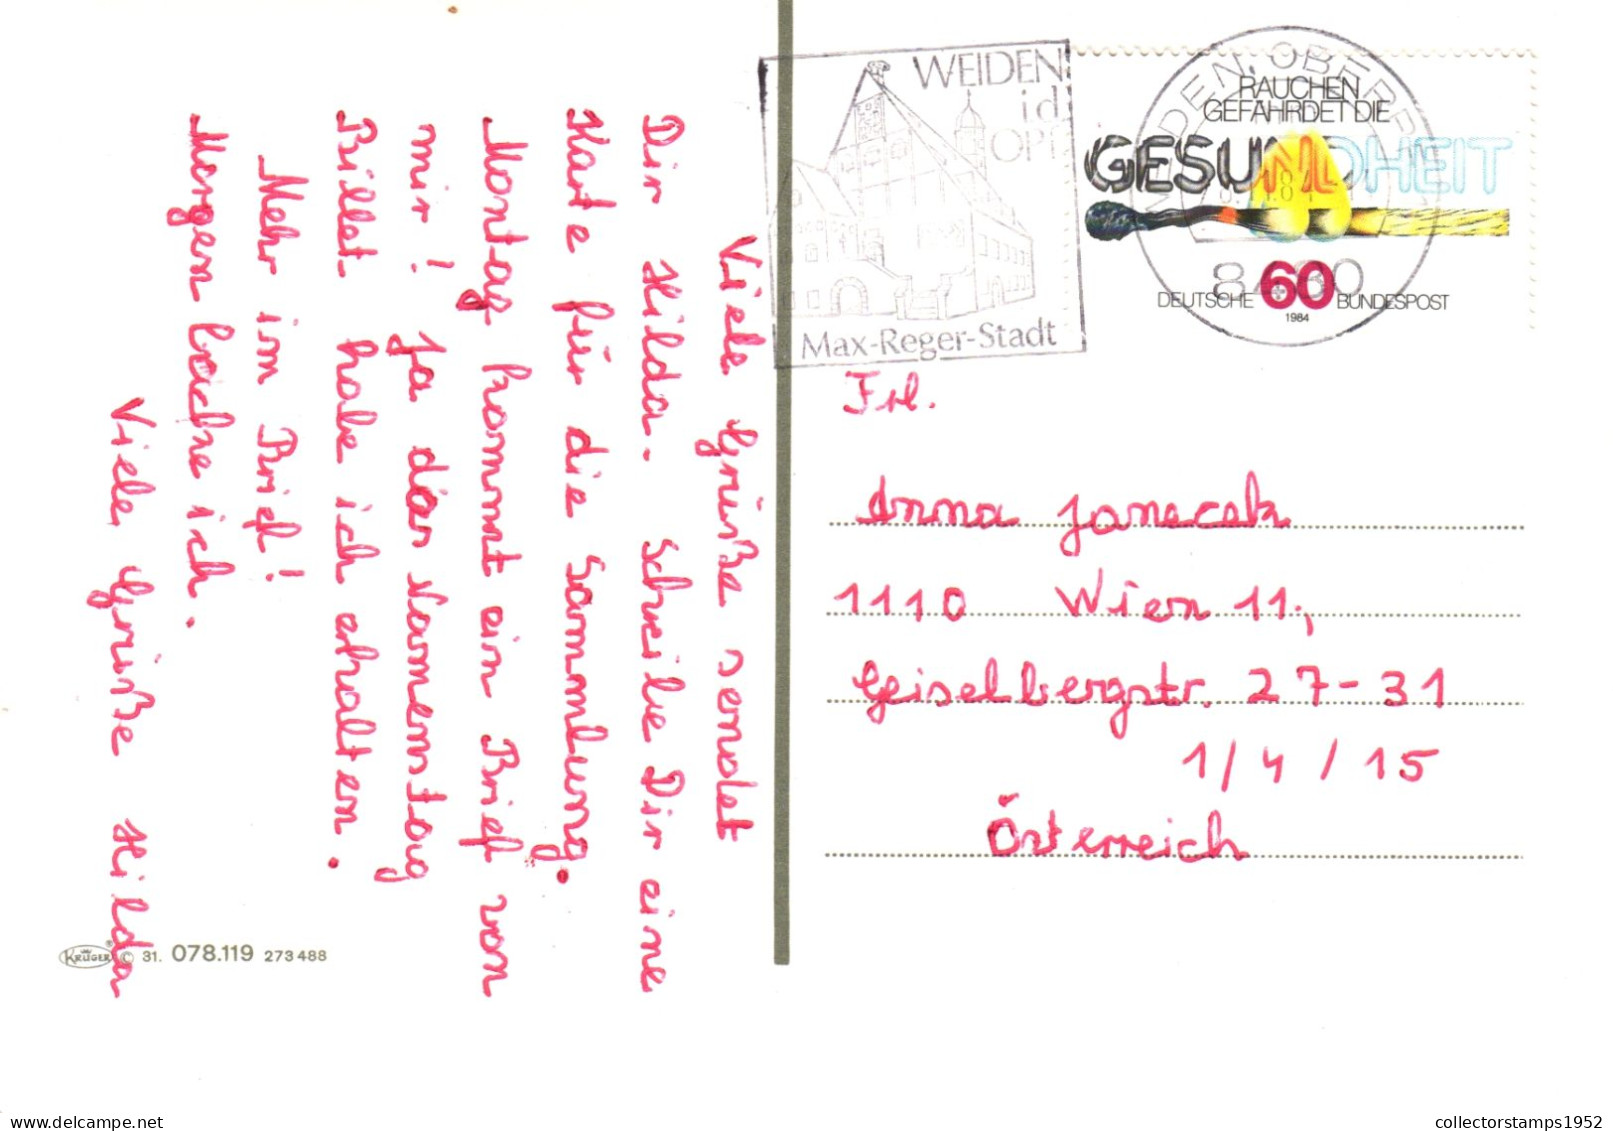 Viele Grüße sendet
Dir Hilda. Schreibe Dir eine
Karte für die Sammlung.
Montag kommt ein Brief von
mir! Ja das Namenstag
Billet habe ich erhalten.
Mehr im Brief!
Morgen bache ich.
Viele Grüße Hilda
KRÜGER ® © 31. 078.119 273 488
WEIDEN
i d
OPF
Max-Reger-Stadt
WEIDEN, OBERPF
8480
RAUCHEN
GEFÄHRDET DIE
GESUNDHEIT
DEUTSCHE 60 BUNDESPOST
1984
Frl.
Anna Janacek
1110 Wien 11,
Geiselbergstr. 27-31
1/4/15
Österreich
delcampe.net
collectorstamps1952